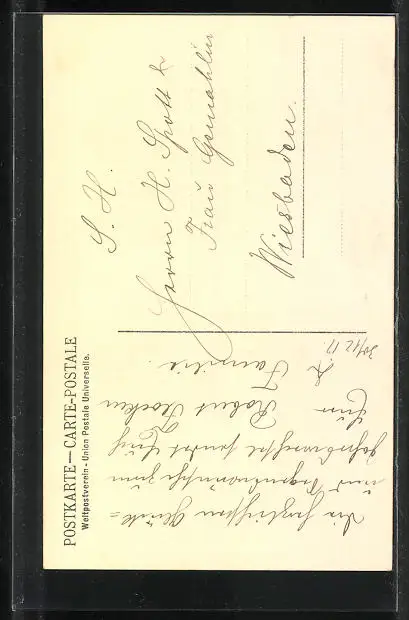 POSTKARTE — CARTE-POSTALE
Weltpostverein - Union Postale Universelle.
S. H.
Herrn H. Spott &
Frau Gemahlin
Wiesbaden.
30/12 17.
Die herzlichsten Glück=
und Segenswünsche zum
Jahreswechsel sendet Euch
Euer Robert
& Familie.